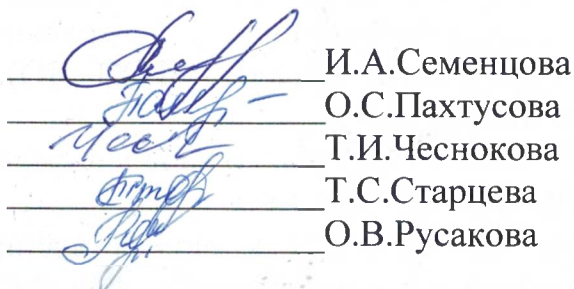 И.А.Семенцова
О.С.Пахтусова
Т.И.Чеснокова
Т.С.Старцева
О.В.Русакова